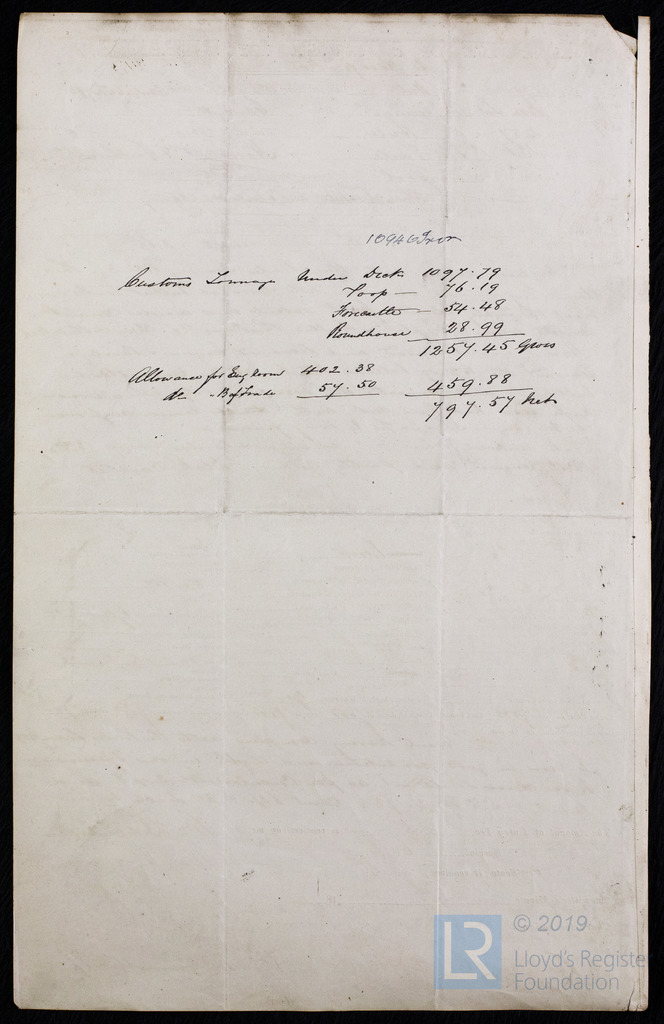 10946 Iron
Customs Tonnage Under Deck 1097.79
Poop — 76.19
Forecastle — 54.48
Roundhouse 28.99
1257.45 Gross
Allowance for Eng Room 402.38
do " B of Trade 57.50 459.88
797.57 Nett
© 2019
LR Lloyd's Register
Foundation